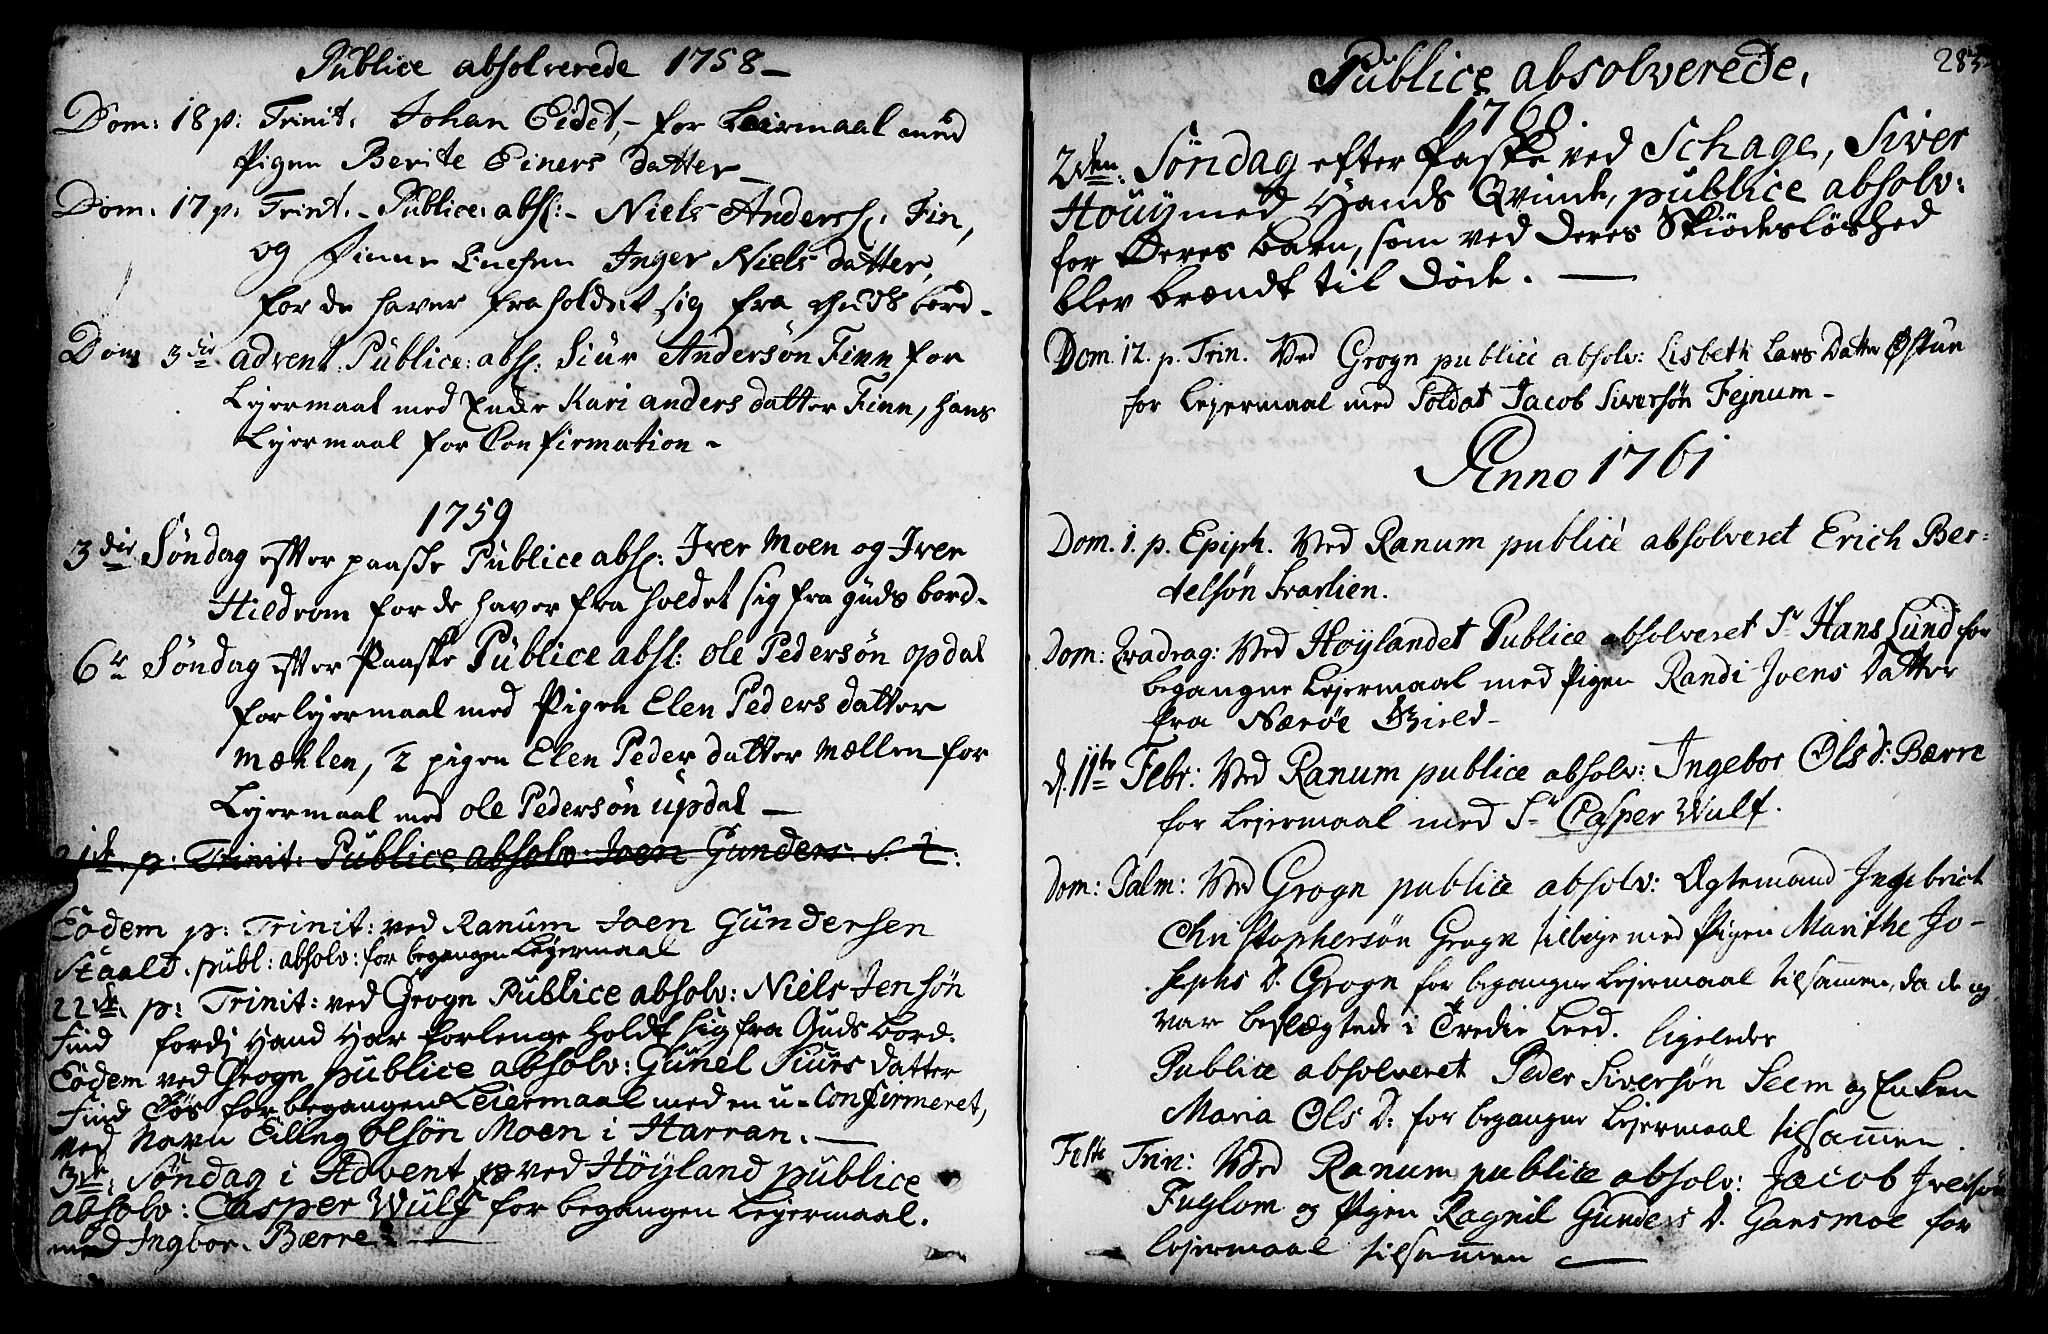 Publice absolverede 1758 –
Dom: 18 p: Trinit. Johan Eidet, for Leiermaal med
Pigen Berite Einers Datter –
Dom. 17 p. Trinit. – Publice: abs: – Niels Anderss. Fin,
og Inger Niels Datter,
for de haver fraholdet sig fra Guds bord –
Dom 3die advent. Publice: abs: Siur Andersøn Finn for
Lejermaal med Kari anders datter Finn, hans
Lejermaal for Confirmation –
1759
3die Søndag efter paaske Publice abs: Iver Moen og Iver
Hildrom for de haver fra holdet sig fra guds bord –
6te Søndag efter Paaske Publice abs: ole Pedersøn opdal
for lejermaal med Pigen Elen Peders datter
mæhlen, 2 pigen Elen Peder datter mællen for
Lejermaal med ole Pedersøn updal –
21de p: Trinit: Publice absolv: Joen Gunders: S. 2:
Eodem p: Trinit: ved Ranum Joen Gundersen
Staald. publ: absolv: for begangen Lejermaal
22de p: Trinit: ved Grogn Publice absolv: Niels Jensøn
Find fordj Hand Har forlenge Holdt sig fra Guds Bord.
Eodem ved Grogn publice absolv: Gunel Siurs datter
Find Løs for begangen Leiermaal med en u-Confirmeret,
ved Navn Eiling olsøn Moen i Harran. –
3de: Søndag i Advent ved Höyland publice
absolv: Casper Wulf for begangen Lejermaal.
med Ingbor. Bærre –
Publice absolverede. 283
1760.
2den: Søndag efter Paaske ved Schage, Siver
Houg med Hands Qvinde, publice absolv:
for deres barn, som ved deres Skiødesløshed
blev brændt til døde. –
Dom. 12. p. Trin. Ved Grogn publice absolv: Lisbeth Lars Datter Østun
for Lejermaal med Soldat Jacob Siversøn Fejnum –
Anno 1761
Dom. 1. p. Epiph. Ved Ranum publice absolveret Erich Ber-
telsøn Svarlien.
Dom: Qvadrag: Ved Høylandet Publice absolveret Sr Hans Lund for
begangne Lejermaal med Pigen Randi Joens Datter
fra Nærøe Gield –
d. 11te Febr: Ved Ranum publice absolv: Ingebor Ols d: Bærre
for Lejermaal med Sr Casper Wulf.
Dom: Palm: Ved Grogn publice absolv: Ægtemand Ingebrict
Christophersøn Grogn tillige med Pigen Marithe Jo-
sephs D. Grogn for begangne Lejermaal tilsammen, da de og
var beslægtede i Tredie Leed. ligeledes
Publice absolveret Peder Siversøn Seem og Enken
Maria Ols D: for begangne Lejermaal tilsammen.
Festo Trin: Ved Ranum publice absolv: Jacob Iversøn
Fuglom og Pigen Ragnil Gunders D. Gansmoe for
lejermaal tilsammen –